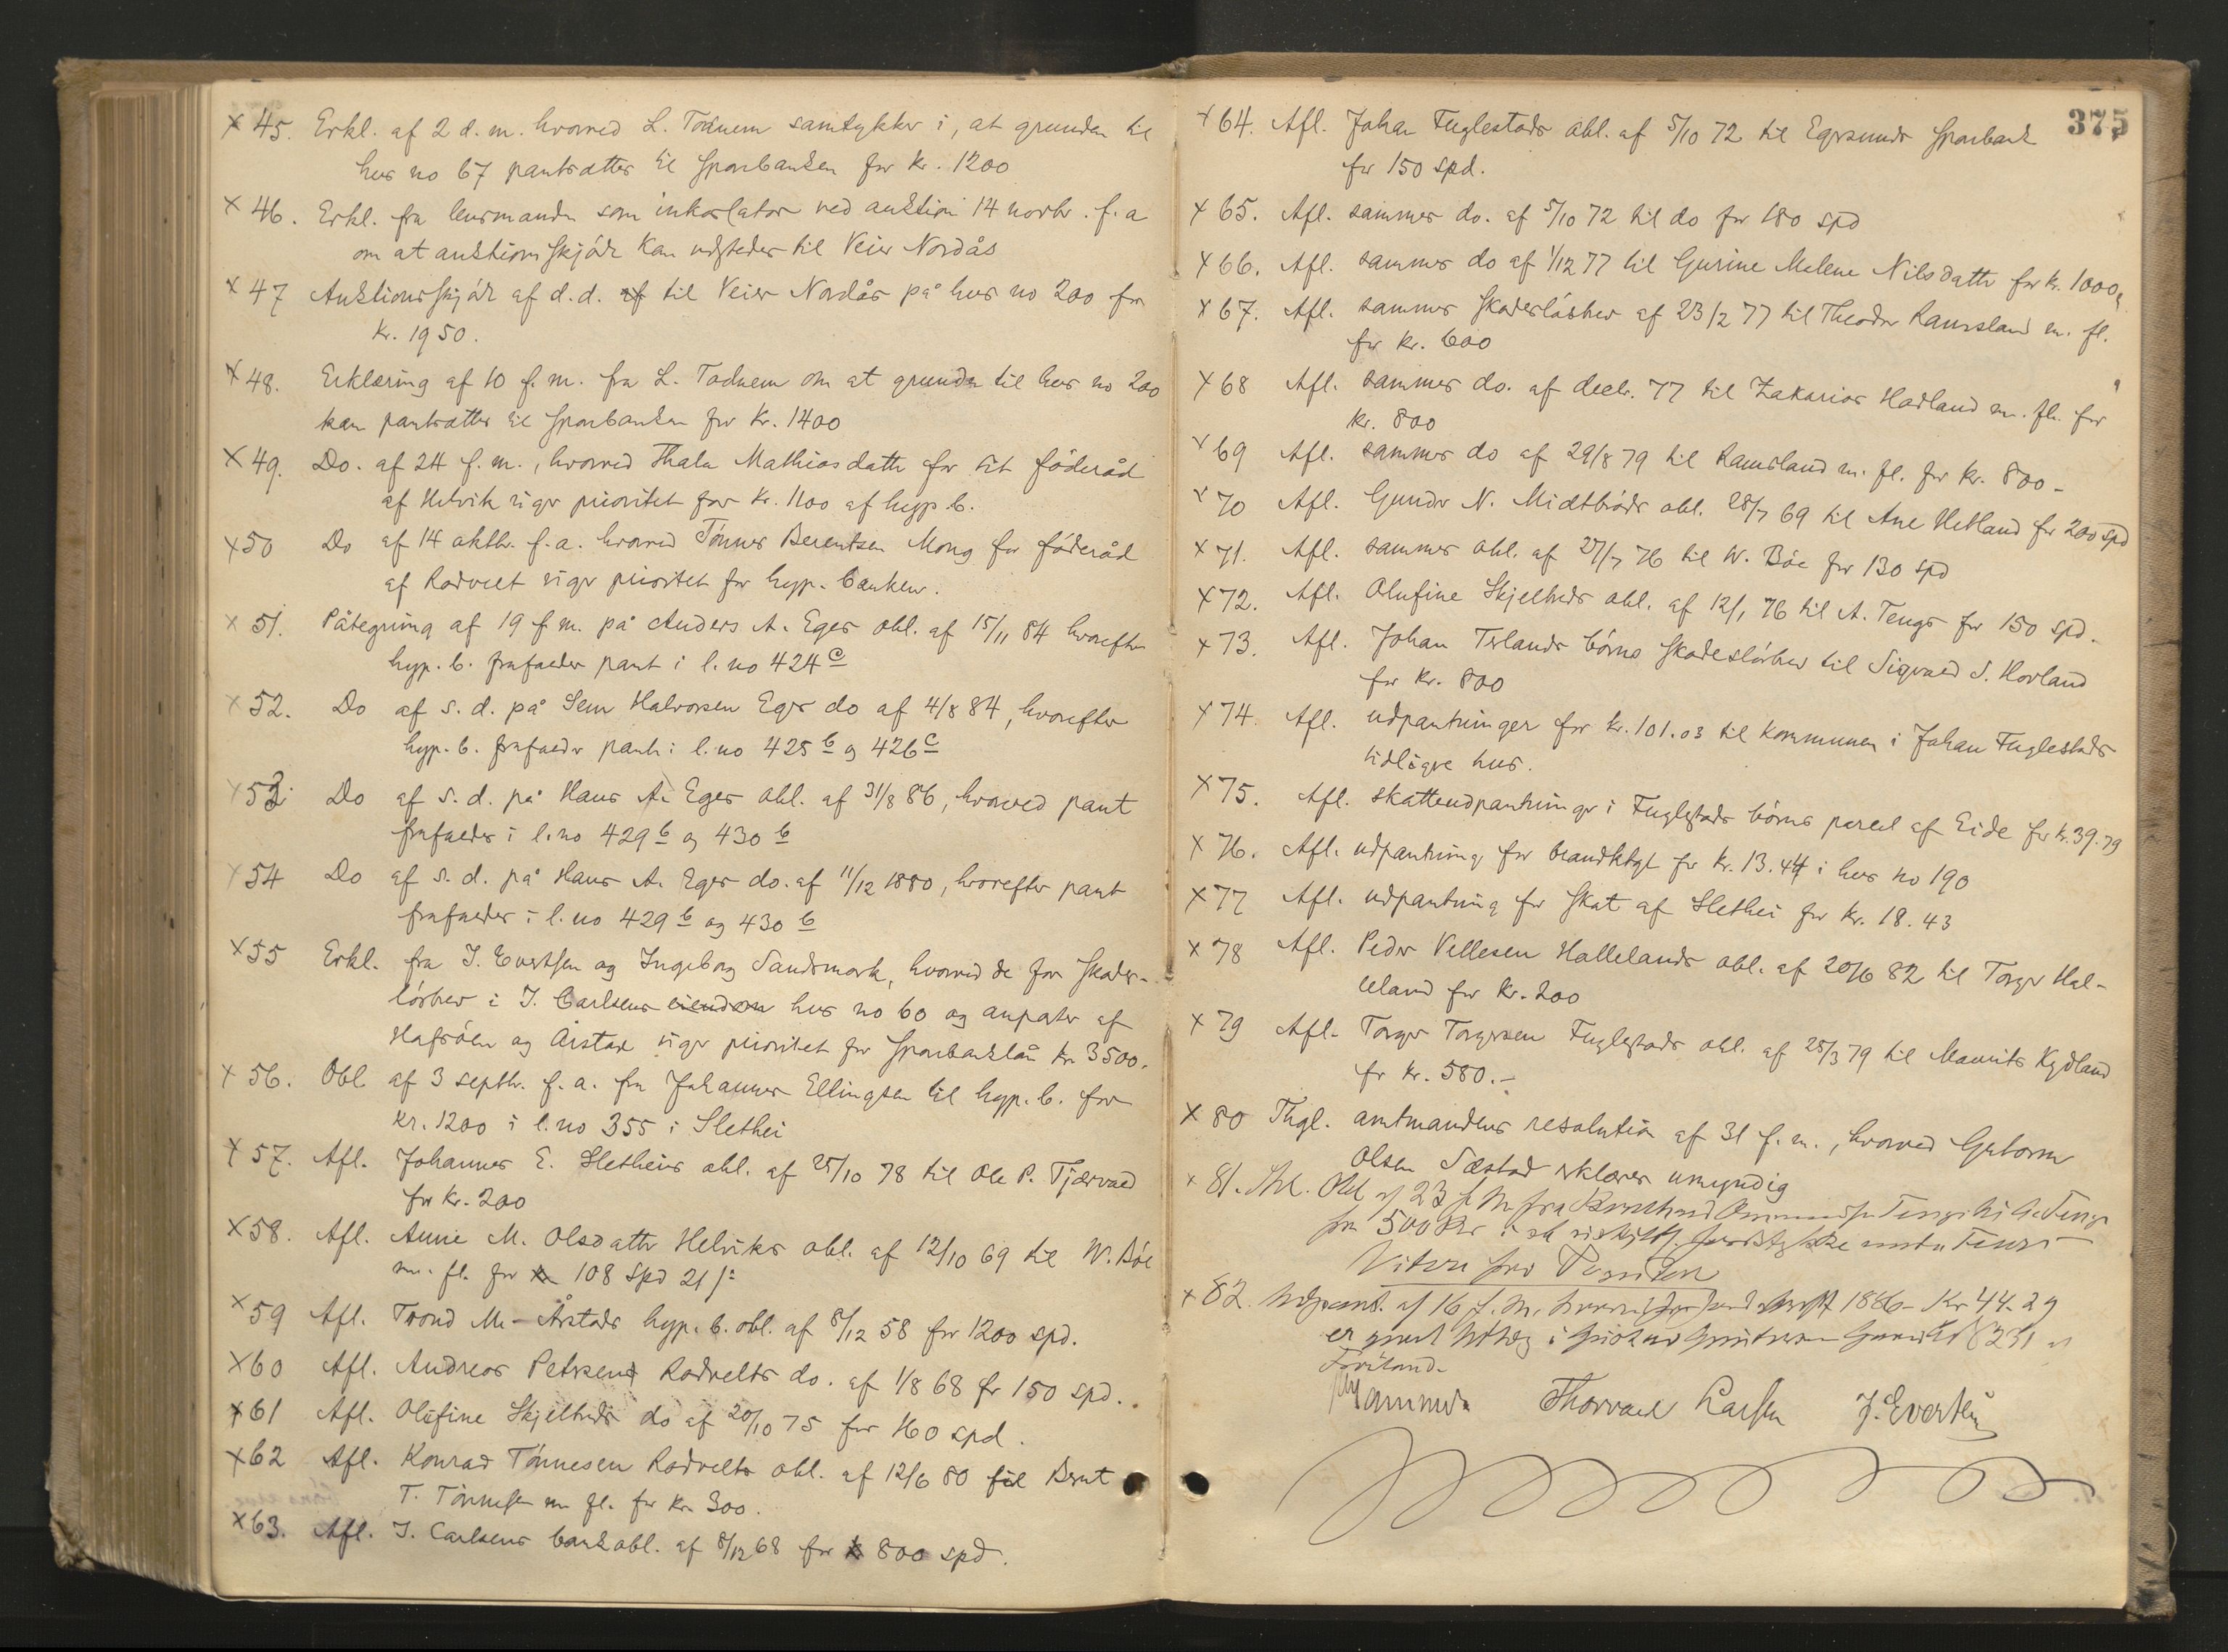 × 45. Erkl. af 2 d. m. hvorved L. Todnem samtykker i, at grunden til
hus no 67 pantsættes til Sparbanken for kr. 1200
× 46. Erkl. fra lensmanden som inkasator ved auktion 14 novbr. f. a
om at auktionsskjöde kan udstedes til Veier Nordås
× 47 Auktionsskjöde af d. d. til Veier Nordås på hus no 200 for
kr. 1950.
× 48. Erklæring af 10 f. m. fra L. Todnem om at grunden til hus no 200
kan pantsættes til Sparbanken for kr. 1400
× 49. Do. af 24 f. m., hvorved Thala Mathiasdatter for sit föderåd
af Helvik viger prioritet for kr. 1100 af hyp. b.
× 50 Do af 14 oktbr. f. a. hvorved Tönnes Berentsen Mong for föderåd
af Rodvelt viger prioritet for hyp. banken.
× 51. Påtegning af 19 f. m. på Anders A. Eges obl. af 15/11 84 hvorefter
hyp. b. frafalder pant i l. no 424 c
× 52. Do af s. d. på Sem Halvorsen Eges do af 4/8 84, hvorefter
hyp. b. frafalder pant i l. no 425 b og 426 c
× 53. Do af s. d. på Hans A. Eges obl. af 31/8 86, hvorved pant
frafaldes i l. no 429 b og 430 b
× 54 Do af s. d. på Hans A. Eges do. af 11/12 1880, hvorefter pant
frafaldes i l. no 429 b og 430 b
× 55 Erkl. fra J. Evertsen og Ingeborg Sandsmark, hvorved de for skades-
lösbrev i J. Carlsens eiendom hus no 60 og anparter af
Hafsöen og Årstad viger prioritet for Sparbanklån kr 3500.
× 56. Obl. af 3 septbr. f. a. fra Johannes Ellingsen til hyp. b. for
kr. 1200 i l. no 355 i Slethei
× 57. Afl. Johannes E. Sletheis obl. af 25/10 78 til Ole P. Tjærvald
for kr. 200
× 58. Afl. Anne M. Olsdatter Helviks obl. af 12/10 69 til W. Böe
m. fl. for 108 spd 21 s
× 59 Afl. Trond M. Årstads hyp. b. obl. af 8/12 58 for 1200 spd.
× 60 Afl. Andreas Petersens Rodvelts do. af 1/8 68 for 150 spd.
× 61 Afl. Olufine Skjelbreds do af 20/10 75 for 160 spd.
× 62 Afl. Konrad Tönnesen Rodvelts obl. af 12/6 80 til Bernt
T. Tönnesen m fl. for kr. 300.
× 63. Afl. J. Carlsens bankobl. af 8/12 68 for 800 spd.
375
× 64. Afl. Johan Fuglestads obl. af 5/10 72 til Egersunds Sparbank
for 150 spd.
× 65. Afl. sammes do. af 5/10 72 til do for 180 spd
× 66. Afl. sammes do af 1/12 77 til Gurine Malene Nilsdatter for kr. 1000
× 67. Afl. sammes skadeslösbrev af 23/2 77 til Theodor Raunsland m. fl.
for kr. 600
× 68 Afl. sammes do. af decbr. 77 til Zakarias Hadland m. fl. for
kr. 800
× 69 Afl. sammes do af 29/8 79 til Raunsland m. fl. for kr. 800 -
× 70 Afl. Gunder N. Midtbröds obl. 28/7 69 til Ane Hetland for 200 spd
× 71. Afl. sammes obl. af 27/7 76 til W. Böe for 130 spd
× 72. Afl. Olufine Skjelbreds obl. af 12/1 76 til A. Tengs for 150 spd.
× 73. Afl. Johan Tslands börns skadeslösbrev til Sigvald S. Hovland
for kr. 800
× 74. Afl. udpantninger for kr. 101.03 til kommunen i Johan Fuglestads
tidligere hus.
× 75. Afl. skatteudpantninger i Fuglestads börns parcel af Eide for kr. 39.79
× 76. Afl. udpantning for brandktgt for kr. 13.44 i hus no 190
× 77 Afl. udpantning for skat af Slethei for kr. 18.43
× 78 Afl. Peder Vellesen Hallelands obl. af 20/6 82 til Torger Hal-
leland for kr. 200
× 79 Afl. Torger Torgersen Fuglestads obl. af 25/3 79 til Maurits Kydland
for kr. 580.-
× 80 Thgl. amtmandens resolution af 31 f. m., hvorved Gutorm
Olsen Sæstad erklæres umyndig
× 81. Obl af 23 f M fra Tengs til Tengs
for 500 Kr i et under Tengs
× 82. Udpant. af 16 f. M. 1886 - Kr 44.29
er i No 231 a
Thorvald Larsen J. Evertsen